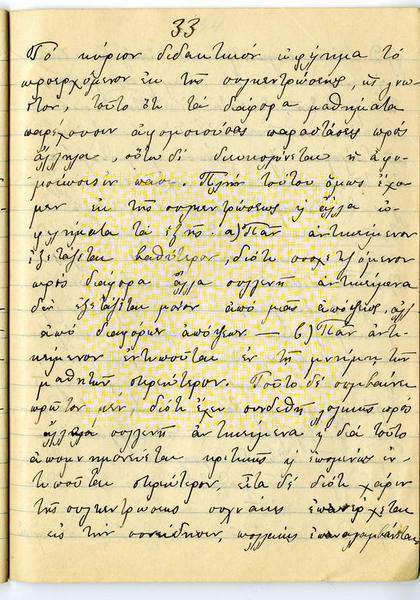 33
Τό κύριον διδακτικόν ὠφέλημα τό
προερχόμενον ἐκ τῆς συγκεντρώσεως, ὡς γνω-
στόν, τοῦτο ὅτι τά διάφορα μαθήματα
παρέχουσιν ἀφομοιούσας παραστάσεις πρός
ἄλληλα, οὕτω δέ διευκολύνεται ἡ ἀφο-
μοίωσις. Πλήν τούτου ὅμως ἔχο-
μεν ἐκ τῆς συγκεντρώσεως ἄλλα ὠ-
φελήματα τά ἑξῆς. α) Πᾶν ἀντικείμενον
ἐξετάζεται βαθύτερον, διότι συσχετιζόμενον
πρός διάφορα ἄλλα συγγενῆ ἀντικείμενα
δέν ἐξετάζεται μόνον ἀπό μιᾶς ἀπόψεως, ἀλλ'
ἀπό διαφόρων ἀπόψεων. — β) Πᾶν ἀντι-
κείμενον ἐντυποῦται ἐν τῇ μνήμῃ τῶν
μαθητῶν στερεώτερον. Τοῦτο δέ συμβαίνει
πρῶτον μέν, διότι ἔχει συνδεθῆ λογικῶς πρός
ἄλλα συγγενῆ ἀντικείμενα διά τοῦτο
ἀπομνημονεύεται κριτικῶς ἑπομένως ἐν-
τυποῦται στερεώτερον, εἶτα δέ διότι χάριν
τῆς συγκεντρώσεως συχνάκις ἐπανέρχεται
εἰς τήν συνείδησιν, πολλάκις ἐπαναλαμβάνεται